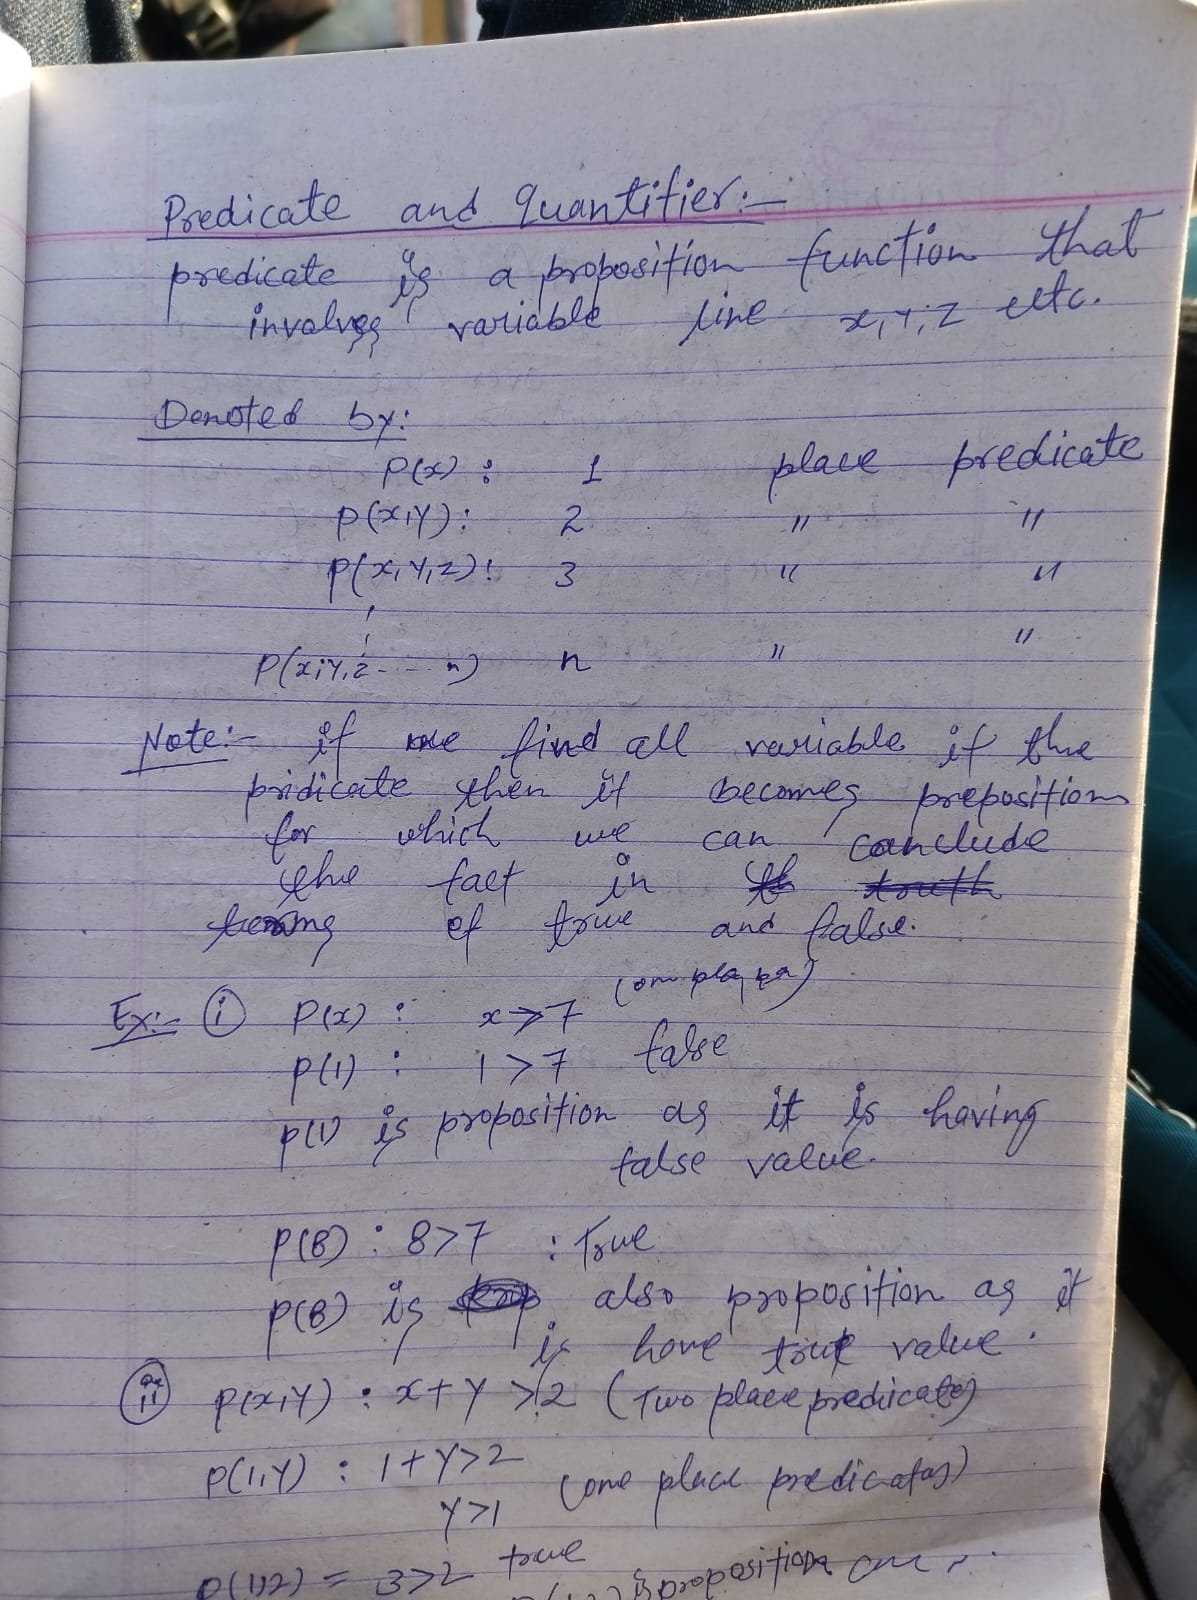 Predicate and Quantifier:-
predicate is a proposition function that
involves variable line x, Y, Z etc.
Denoted by:
P(x) : 1 place predicate
P(x,Y): 2 " "
P(x,Y,Z): 3 " "
P(x,Y,z---n) n " "
Note:- if we find all variable if the
pridicate then it becomes preposition
for which we can conclude
the fact in
terms of true and false.
Ex:- (i) P(x) : x>7
P(1) : 1>7 false
P(1) is proposition as it is having
false value.
P(8) : 8>7 : True
P(8) is also proposition as it
is have true value.
(ii) P(x,Y) : x+Y >2 (Two place predicate)
P(1,Y) : 1+Y>2
Y>1 (one place predicates)
P(1,2) = 3>2 true
is proposition